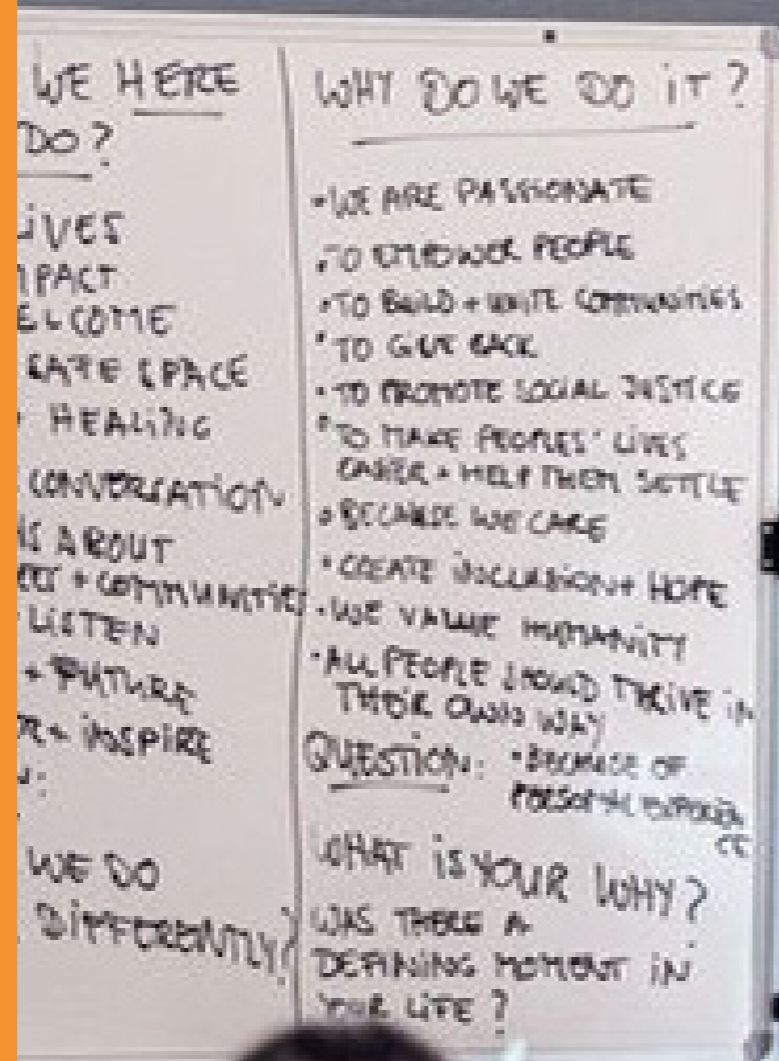 WE HERE
DO?
LIVES
IMPACT
WELCOME
SAFE SPACE
+ HEALING
CONVERSATION
ABOUT
+ COMMUNITIES
LISTEN
+ FUTURE
+ INSPIRE
WE DO
DIFFERENTLY?
WHY DO WE DO iT?
• WE ARE PASSIONATE
• TO EMPOWER PEOPLE
• TO BUILD + UNITE COMMUNITIES
• TO GIVE BACK
• TO PROMOTE SOCIAL JUSTICE
• TO MAKE PEOPLES' LIVES
EASIER + HELP THEM SETTLE
• BECAUSE WE CARE
• CREATE INCLUSION + HOPE
• WE VALUE HUMANITY
• ALL PEOPLE SHOULD THRIVE iN
THEIR OWN WAY
QUESTION: • BECAUSE OF
PERSONAL EXPERIEN
CE
WHAT iS YOUR WHY?
WAS THERE A
DEFINING MOMENT iN
YOUR LiFE?